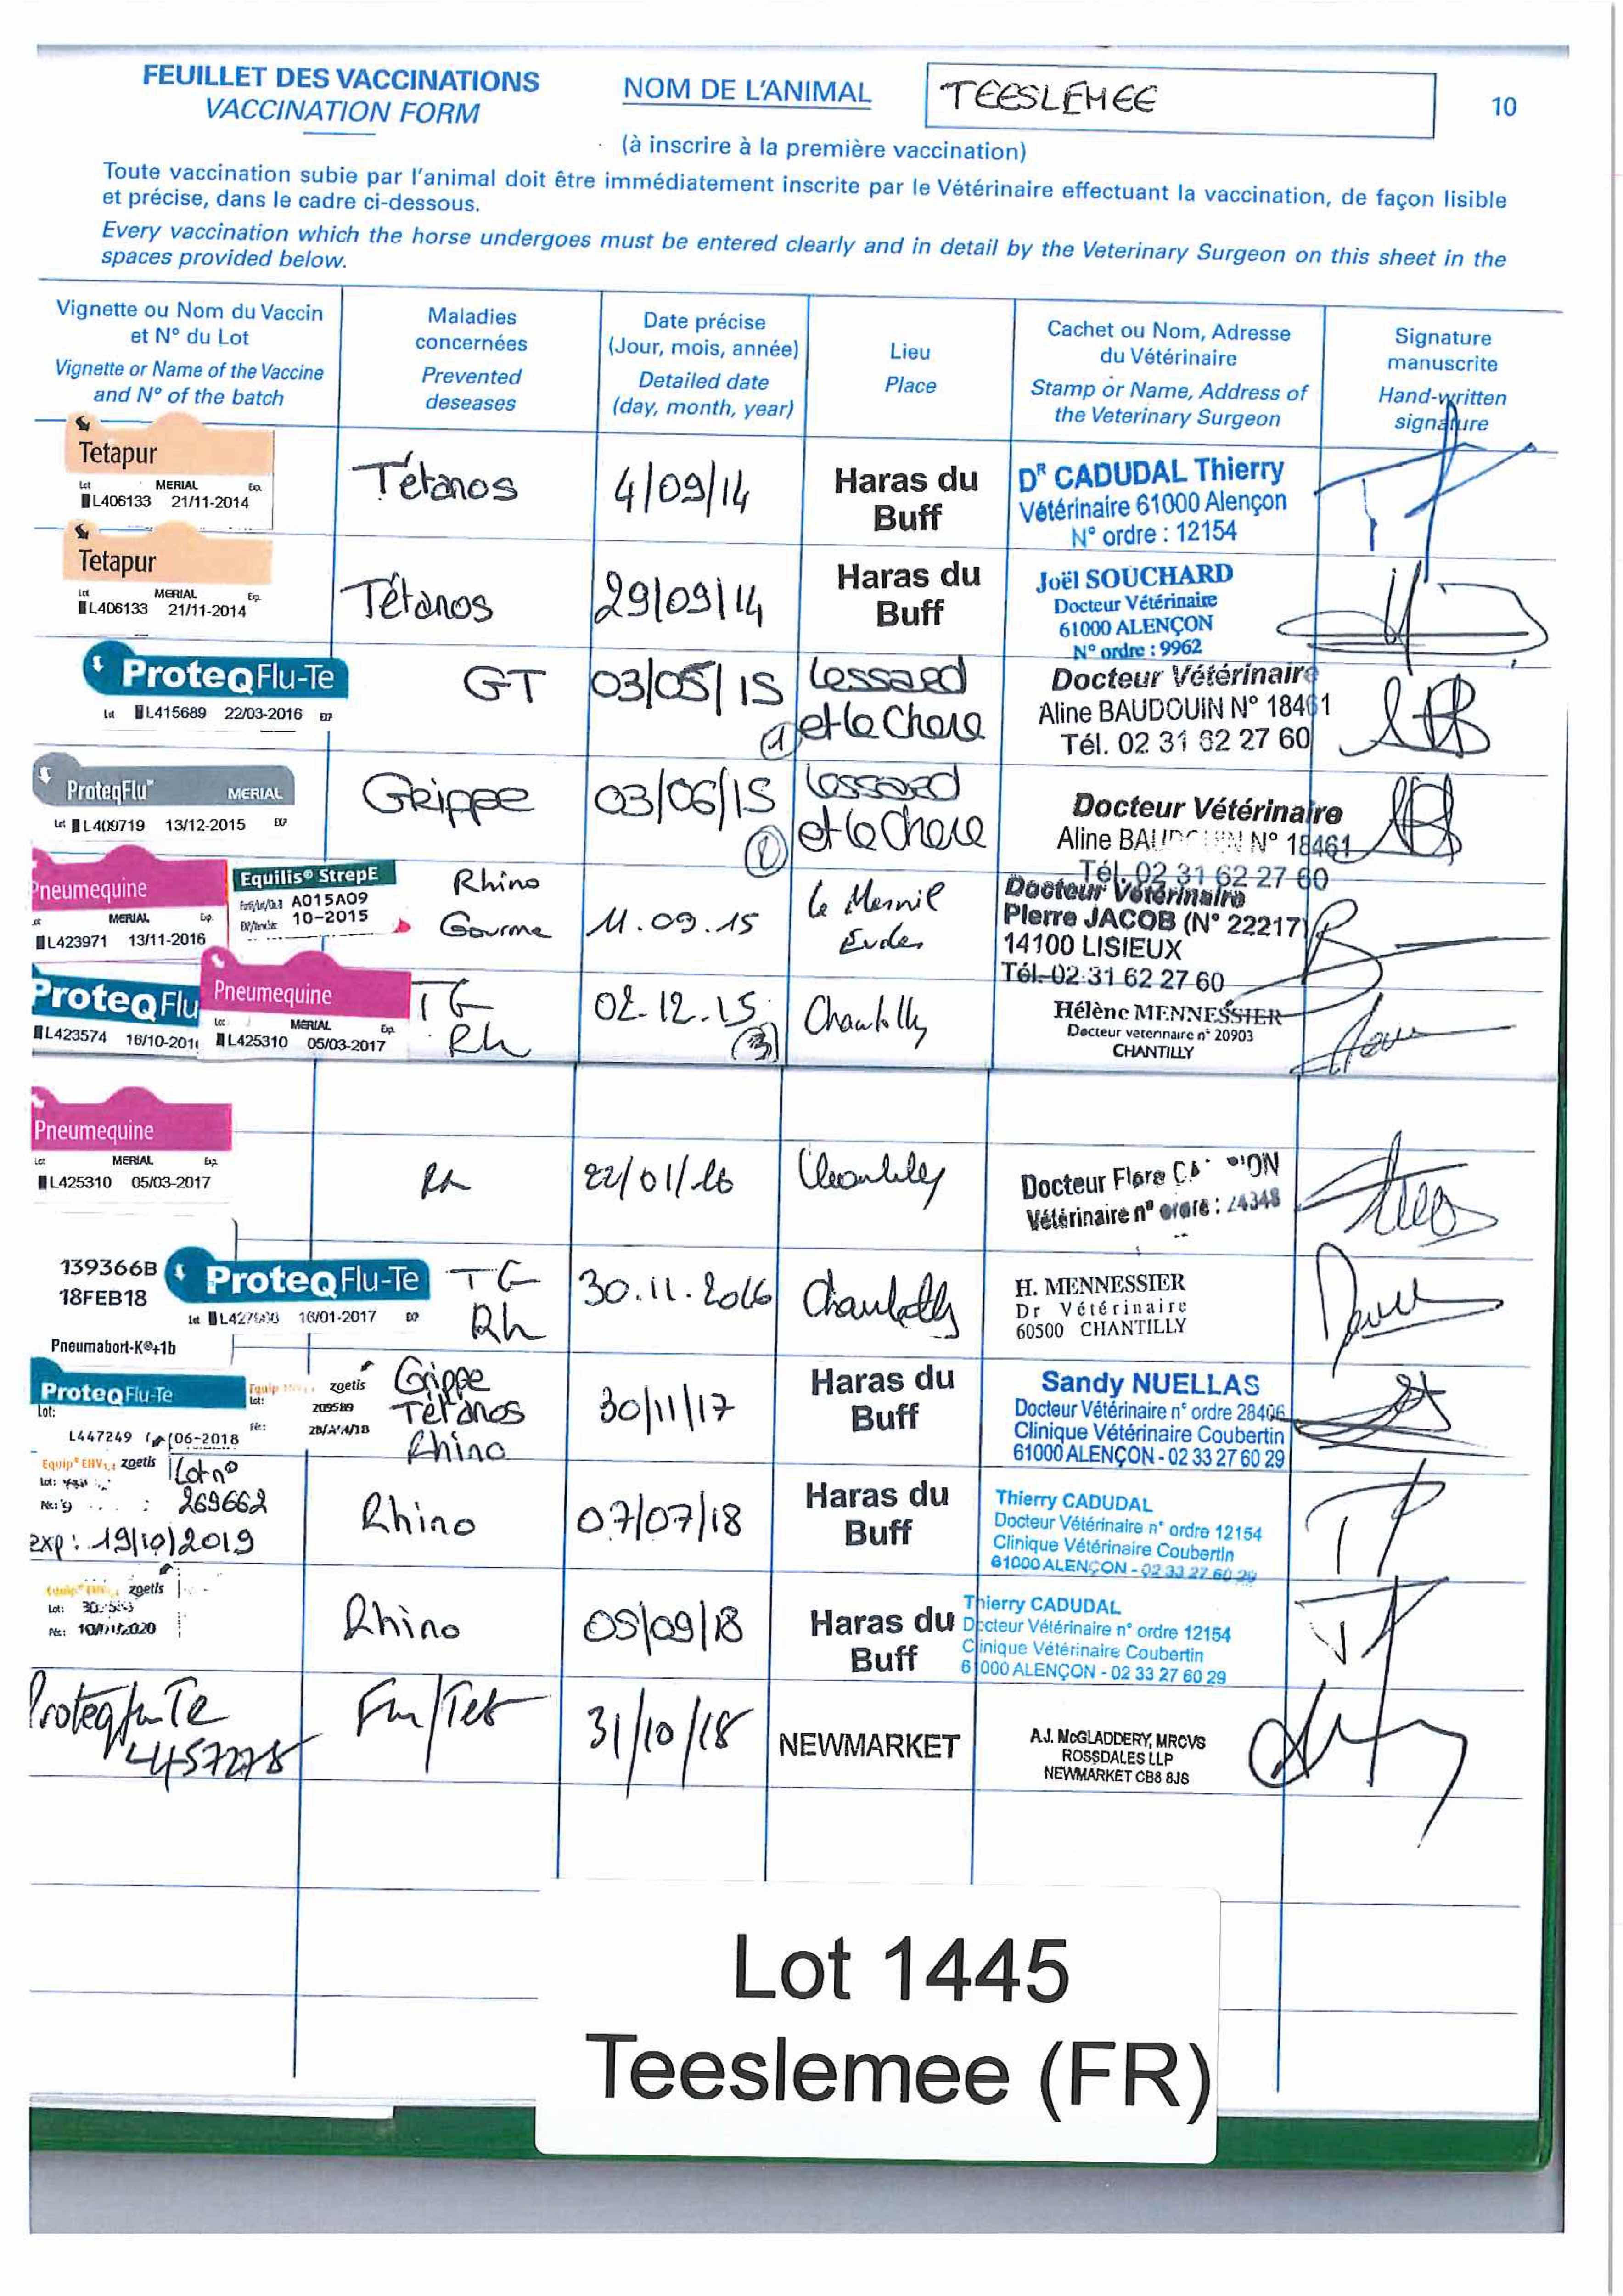 FEUILLET DES VACCINATIONS
VACCINATION FORM
NOM DE L'ANIMAL
TEESLEMEE
10
(à inscrire à la première vaccination)
Toute vaccination subie par l'animal doit être immédiatement inscrite par le Vétérinaire effectuant la vaccination, de façon lisible
et précise, dans le cadre ci-dessous.
Every vaccination which the horse undergoes must be entered clearly and in detail by the Veterinary Surgeon on this sheet in the
spaces provided below.
Vignette ou Nom du Vaccin
et N° du Lot
Vignette or Name of the Vaccine
and N° of the batch
Maladies
concernées
Prevented
deseases
Date précise
(Jour, mois, année)
Detailed date
(day, month, year)
Lieu
Place
Cachet ou Nom, Adresse
du Vétérinaire
Stamp or Name, Address of
the Veterinary Surgeon
Signature
manuscrite
Hand-written
signature
Tetapur
Lot MERIAL Exp.
L406133 21/11-2014
Tétanos
4/09/14
Haras du
Buff
DR CADUDAL Thierry
Vétérinaire 61000 Alençon
N° ordre : 12154
Tetapur
Lot MERIAL Exp.
L406133 21/11-2014
Tétanos
29/09/14
Haras du
Buff
Joël SOUCHARD
Docteur Vétérinaire
61000 ALENÇON
N° ordre : 9962
ProteqFlu-Te
Lot L415689 22/03-2016 EXP
GT
03/05/15
①
Lessard
et le Chene
Docteur Vétérinaire
Aline BAUDOUIN N° 18461
Tél. 02 31 62 27 60
ProteqFlu MERIAL
Lot L409719 13/12-2015 EXP
Grippe
03/06/15
Lessard
et le Chene
Docteur Vétérinaire
Aline N° 18461
Tél. 02 31 62 27 60
Pneumequine
MERIAL Exp.
L423971 13/11-2016
Equilis® StrepE
A015A09
10-2015
Rhino
Gourme
11.09.15
Le Mesnil
Eudes
Docteur Vétérinaire
Pierre JACOB (N° 22217)
14100 LISIEUX
Tél. 02 31 62 27 60
ProteqFlu
L423574
Pneumequine
Lot MERIAL Exp.
L425310 05/03-2017
TG
Rh
02.12.15
③
Chantilly
Hélène MENNESSIER
Docteur veterinaire n° 20903
CHANTILLY
Pneumequine
Lot MERIAL Exp.
L425310 05/03-2017
Rh
22/01/16
Chantilly
Docteur Flore
Vétérinaire n° ordre : 24348
139366B
18FEB18
Pneumabort-K®+1b
ProteqFlu-Te
Lot 16/01-2017 EXP
TG
Rh
30.11.2016
Chantilly
H. MENNESSIER
Dr Vétérinaire
60500 CHANTILLY
ProteqFlu-Te
Lot:
L447249 06-2018
Equip zoetis
Lot: 209589
Grippe
Tetanos
Rhino
30/11/17
Haras du
Buff
Sandy NUELLAS
Docteur Vétérinaire n° ordre 28406
Clinique Vétérinaire Coubertin
61000 ALENÇON - 02 33 27 60 29
Equip® EHV1,4 zoetis
Lot n°
269662
exp: 19/10/2019
Rhino
07/07/18
Haras du
Buff
Thierry CADUDAL
Docteur Vétérinaire n° ordre 12154
Clinique Vétérinaire Coubertin
61000 ALENÇON - 02 33 27 60 29
zoetis
Lot:
Rhino
05/09/18
Haras du
Buff
Thierry CADUDAL
Docteur Vétérinaire n° ordre 12154
Clinique Vétérinaire Coubertin
61000 ALENÇON - 02 33 27 60 29
Proteqflu Te
L457278
Flu/Tet
31/10/18
NEWMARKET
A.J. McGLADDERY, MRCVS
ROSSDALES LLP
NEWMARKET CB8 8JS
Lot 1445
Teeslemee (FR)